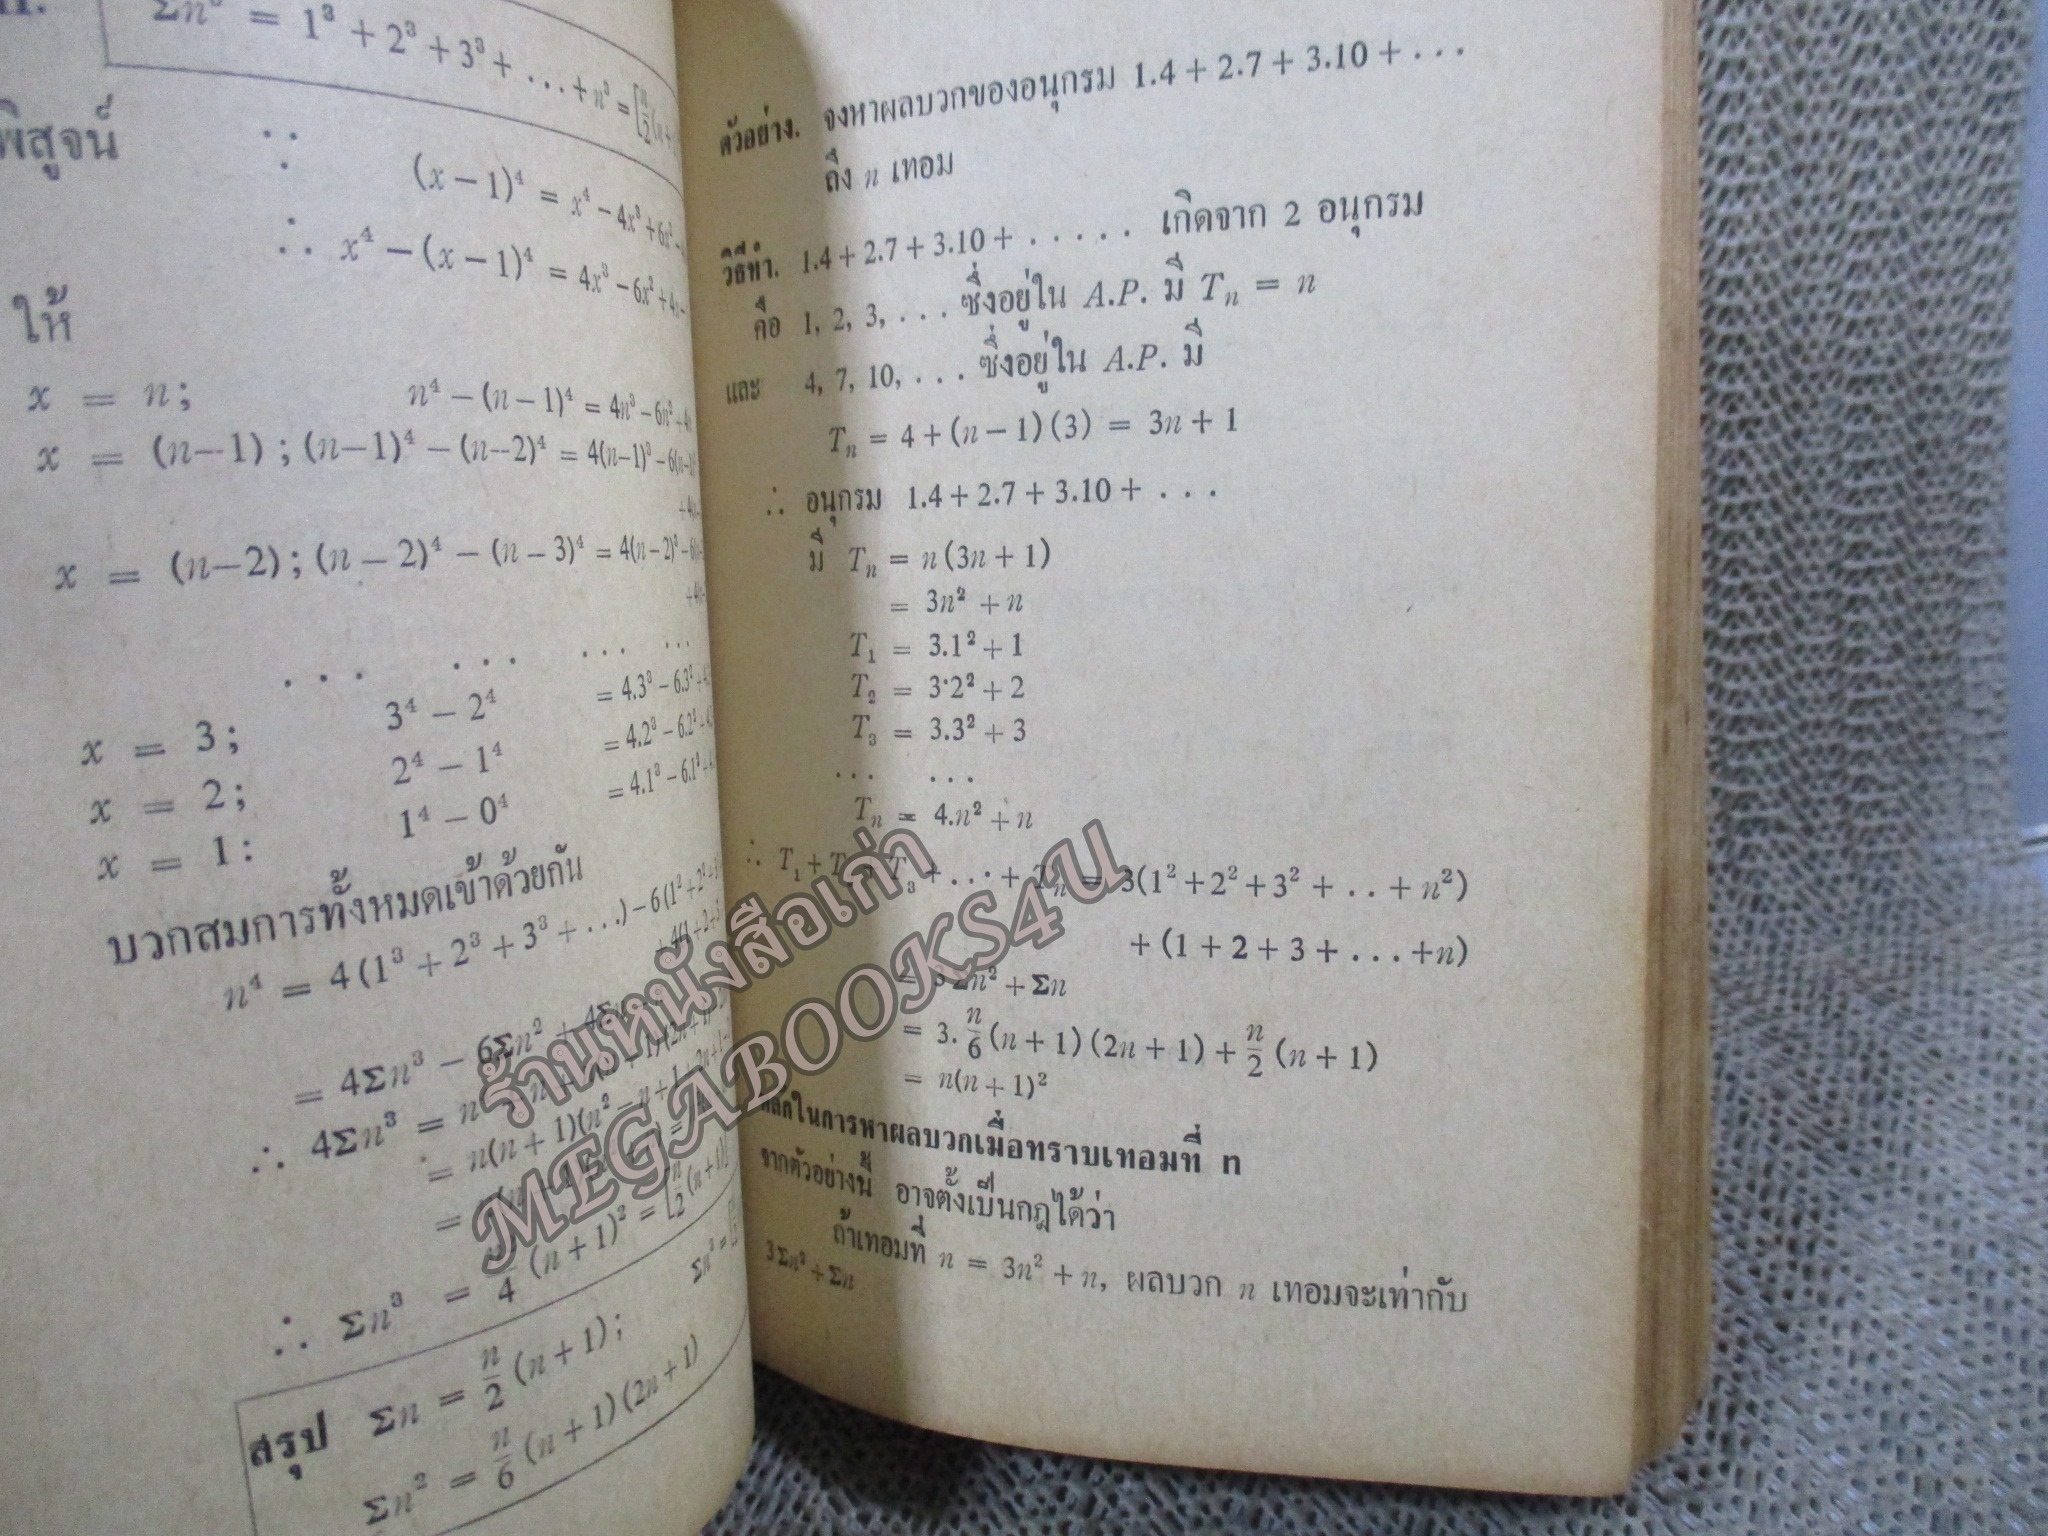 Σn³ = 1³ + 2³ + 3³ + . . . + n³ = [n/2 (n +
พิสูจน์ ∵ (x − 1)⁴ = x⁴ − 4x³ + 6x² −
∴ x⁴ − (x − 1)⁴ = 4x³ − 6x² + 4x −
ให้
x = n; n⁴ − (n − 1)⁴ = 4n³ − 6n² + 4n
x = (n−1) ; (n−1)⁴ − (n−2)⁴ = 4(n−1)³ − 6(n−1)
+ 4(n−
x = (n−2) ; (n − 2)⁴ − (n − 3)⁴ = 4(n − 2)³ − 6(n−2
+4(n−
. . . . . . . . . . . .
x = 3; 3⁴ − 2⁴ = 4.3³ − 6.3² + 4.
x = 2; 2⁴ − 1⁴ = 4.2³ − 6.2² − 4.
x = 1: 1⁴ − 0⁴ = 4.1³ − 6.1² − 4.
บวกสมการทั้งหมดเข้าด้วยกัน
n⁴ = 4 (1³ + 2³ + 3³ + . . .) − 6 (1² + 2² + 3
+ 4(1 + 2 + 3
= 4Σn³ − 6Σn² + 4Σn
∴ 4Σn³ = n⁴
= n(n + 1)(n² − n + 1
=
∴ Σn³ = /4 (n + 1)² = [n/2 (n + 1)]
สรุป Σn = n/2 (n + 1); Σn³ = [
Σn² = n/6 (n + 1) (2n + 1)
ตัวอย่าง. จงหาผลบวกของอนุกรม 1.4 + 2.7 + 3.10 + . . .
ถึง n เทอม
วิธีทำ. 1.4 + 2.7 + 3.10 + . . . . . เกิดจาก 2 อนุกรม
คือ 1, 2, 3, . . . ซึ่งอยู่ใน A.P. มี Tₙ = n
และ 4, 7, 10, . . . ซึ่งอยู่ใน A.P. มี
Tₙ = 4 + (n − 1) (3) = 3n + 1
∴ อนุกรม 1.4 + 2.7 + 3.10 + . . .
มี Tₙ = n (3n + 1)
= 3n² + n
T₁ = 3.1² + 1
T₂ = 3·2² + 2
T₃ = 3.3² + 3
. . . . . .
Tₙ = 4.n² + n
∴ T₁ + T₂ + T₃ + . . . + Tₙ = 3(1² + 2² + 3² + . . + n²)
+ (1 + 2 + 3 + . . . +n)
= 3 Σn² + Σn
= 3. n/6 (n + 1) (2n + 1) + n/2 (n + 1)
= n(n + 1)²
หลักในการหาผลบวกเมื่อทราบเทอมที่ n
จากตัวอย่างนี้ อาจตั้งเป็นกฎได้ว่า
ถ้าเทอมที่ n = 3n² + n, ผลบวก n เทอมจะเท่ากับ
3Σn² + Σn
ร้านหนังสือเก่า
MEGABOOKS4U